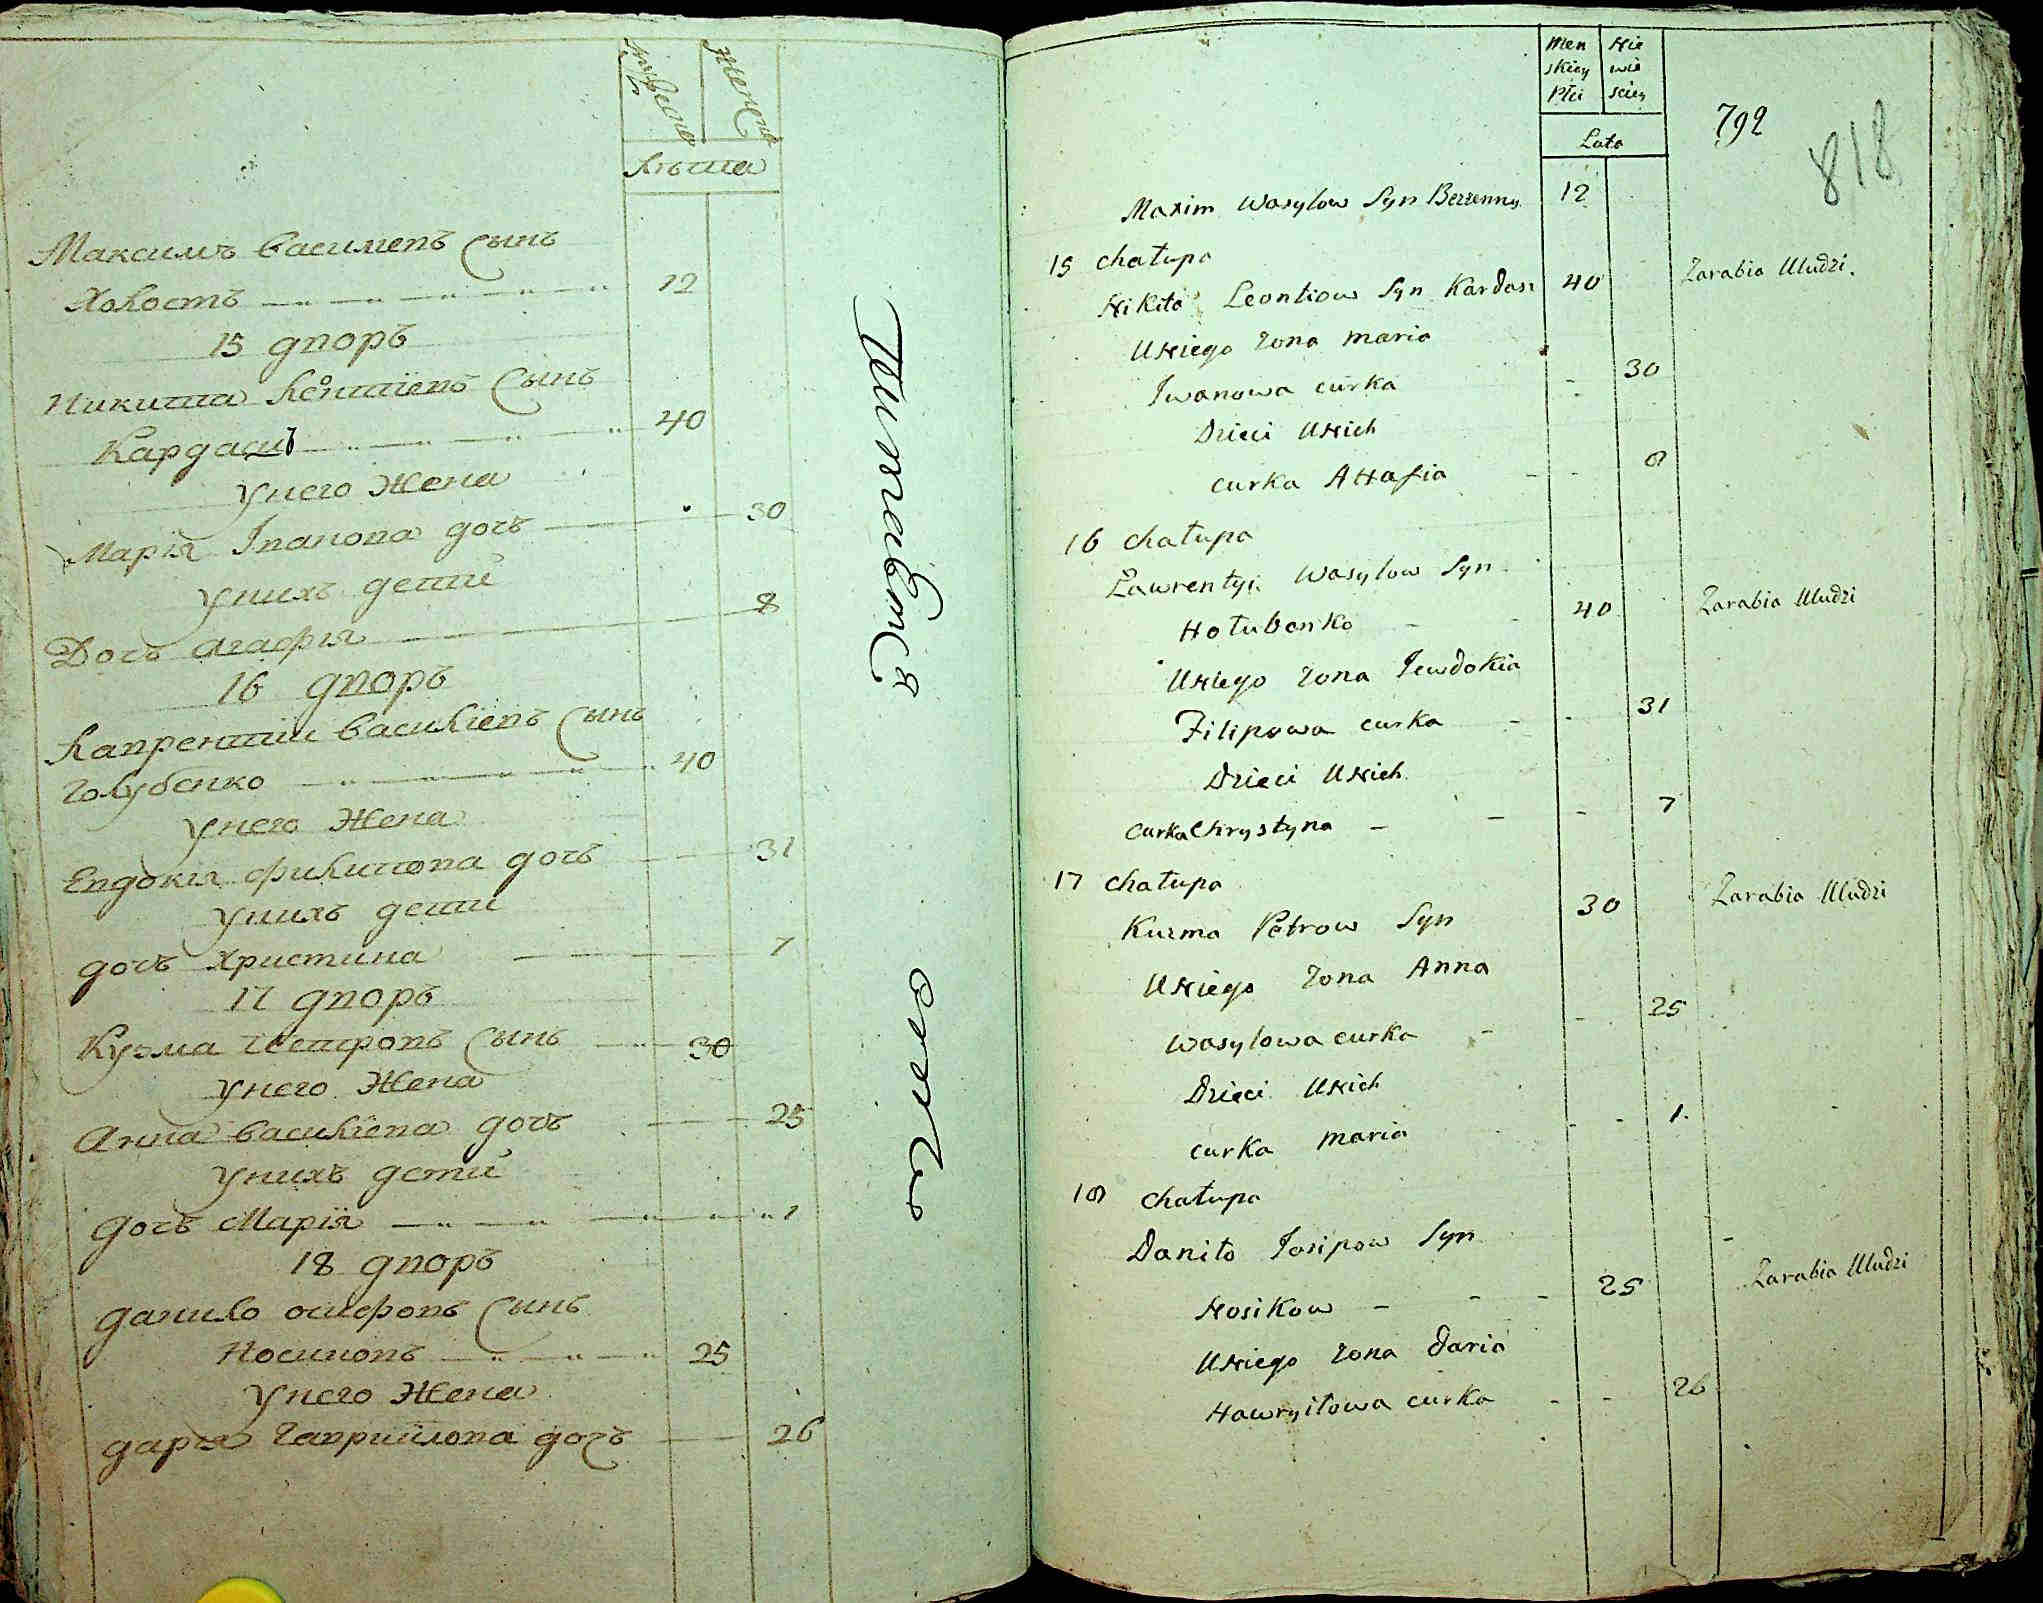 мужеска
женска
Лѣта
Максимъ Василиевъ сынъ
Холостъ 12
15 дворъ
Никита Леонтіевъ сынъ
Кардашъ 40
У него жена
Марія Іванова дочь 30
У нихъ дети
Дочь Агафія 8
16 дворъ
Лаврентій Василіевъ сынъ
Голубенко 40
У него жена
Евдокія Филипова дочь 31
У нихъ дети
дочь Христина 7
17 дворъ
Кузма Петровъ сынъ 30
У него жена
Анна Василіева дочь 25
У нихъ дети
дочь Марія 1
18 дворъ
Данило Осифовъ сынъ
Носиковъ 25
У него жена
дарія Гавриилова дочь 26
Men Nie
skiey wie
Płci sciey
Lata
792
818
Maxim Wasylow Syn Bezżenny 12
15 chałupa
Nikita Leontiow Syn Kardasz 40 Zarabia Uludzi.
Uniego żona Maria
Iwanowa curka 30
Dzieci Unich
curka Ahafia 8
16 chałupa
Ławrentyi Wasylow Syn
Hołubenko 40 Zarabia Uludzi
Uniego żona Jewdokia
Filipowa curka 31
Dzieci Unich
curka Chrystyna 7
17 chałupa
Kuzma Petrow Syn 30 Zarabia Uludzi
Uniego żona Anna
Wasylowa curka 25
Dzieci Unich
curka Maria 1
18 chałupa
Daniło Josipow Syn
Nosikow 25 Zarabia Uludzi
Uniego żona Daria
Hawryiłowa curka 26